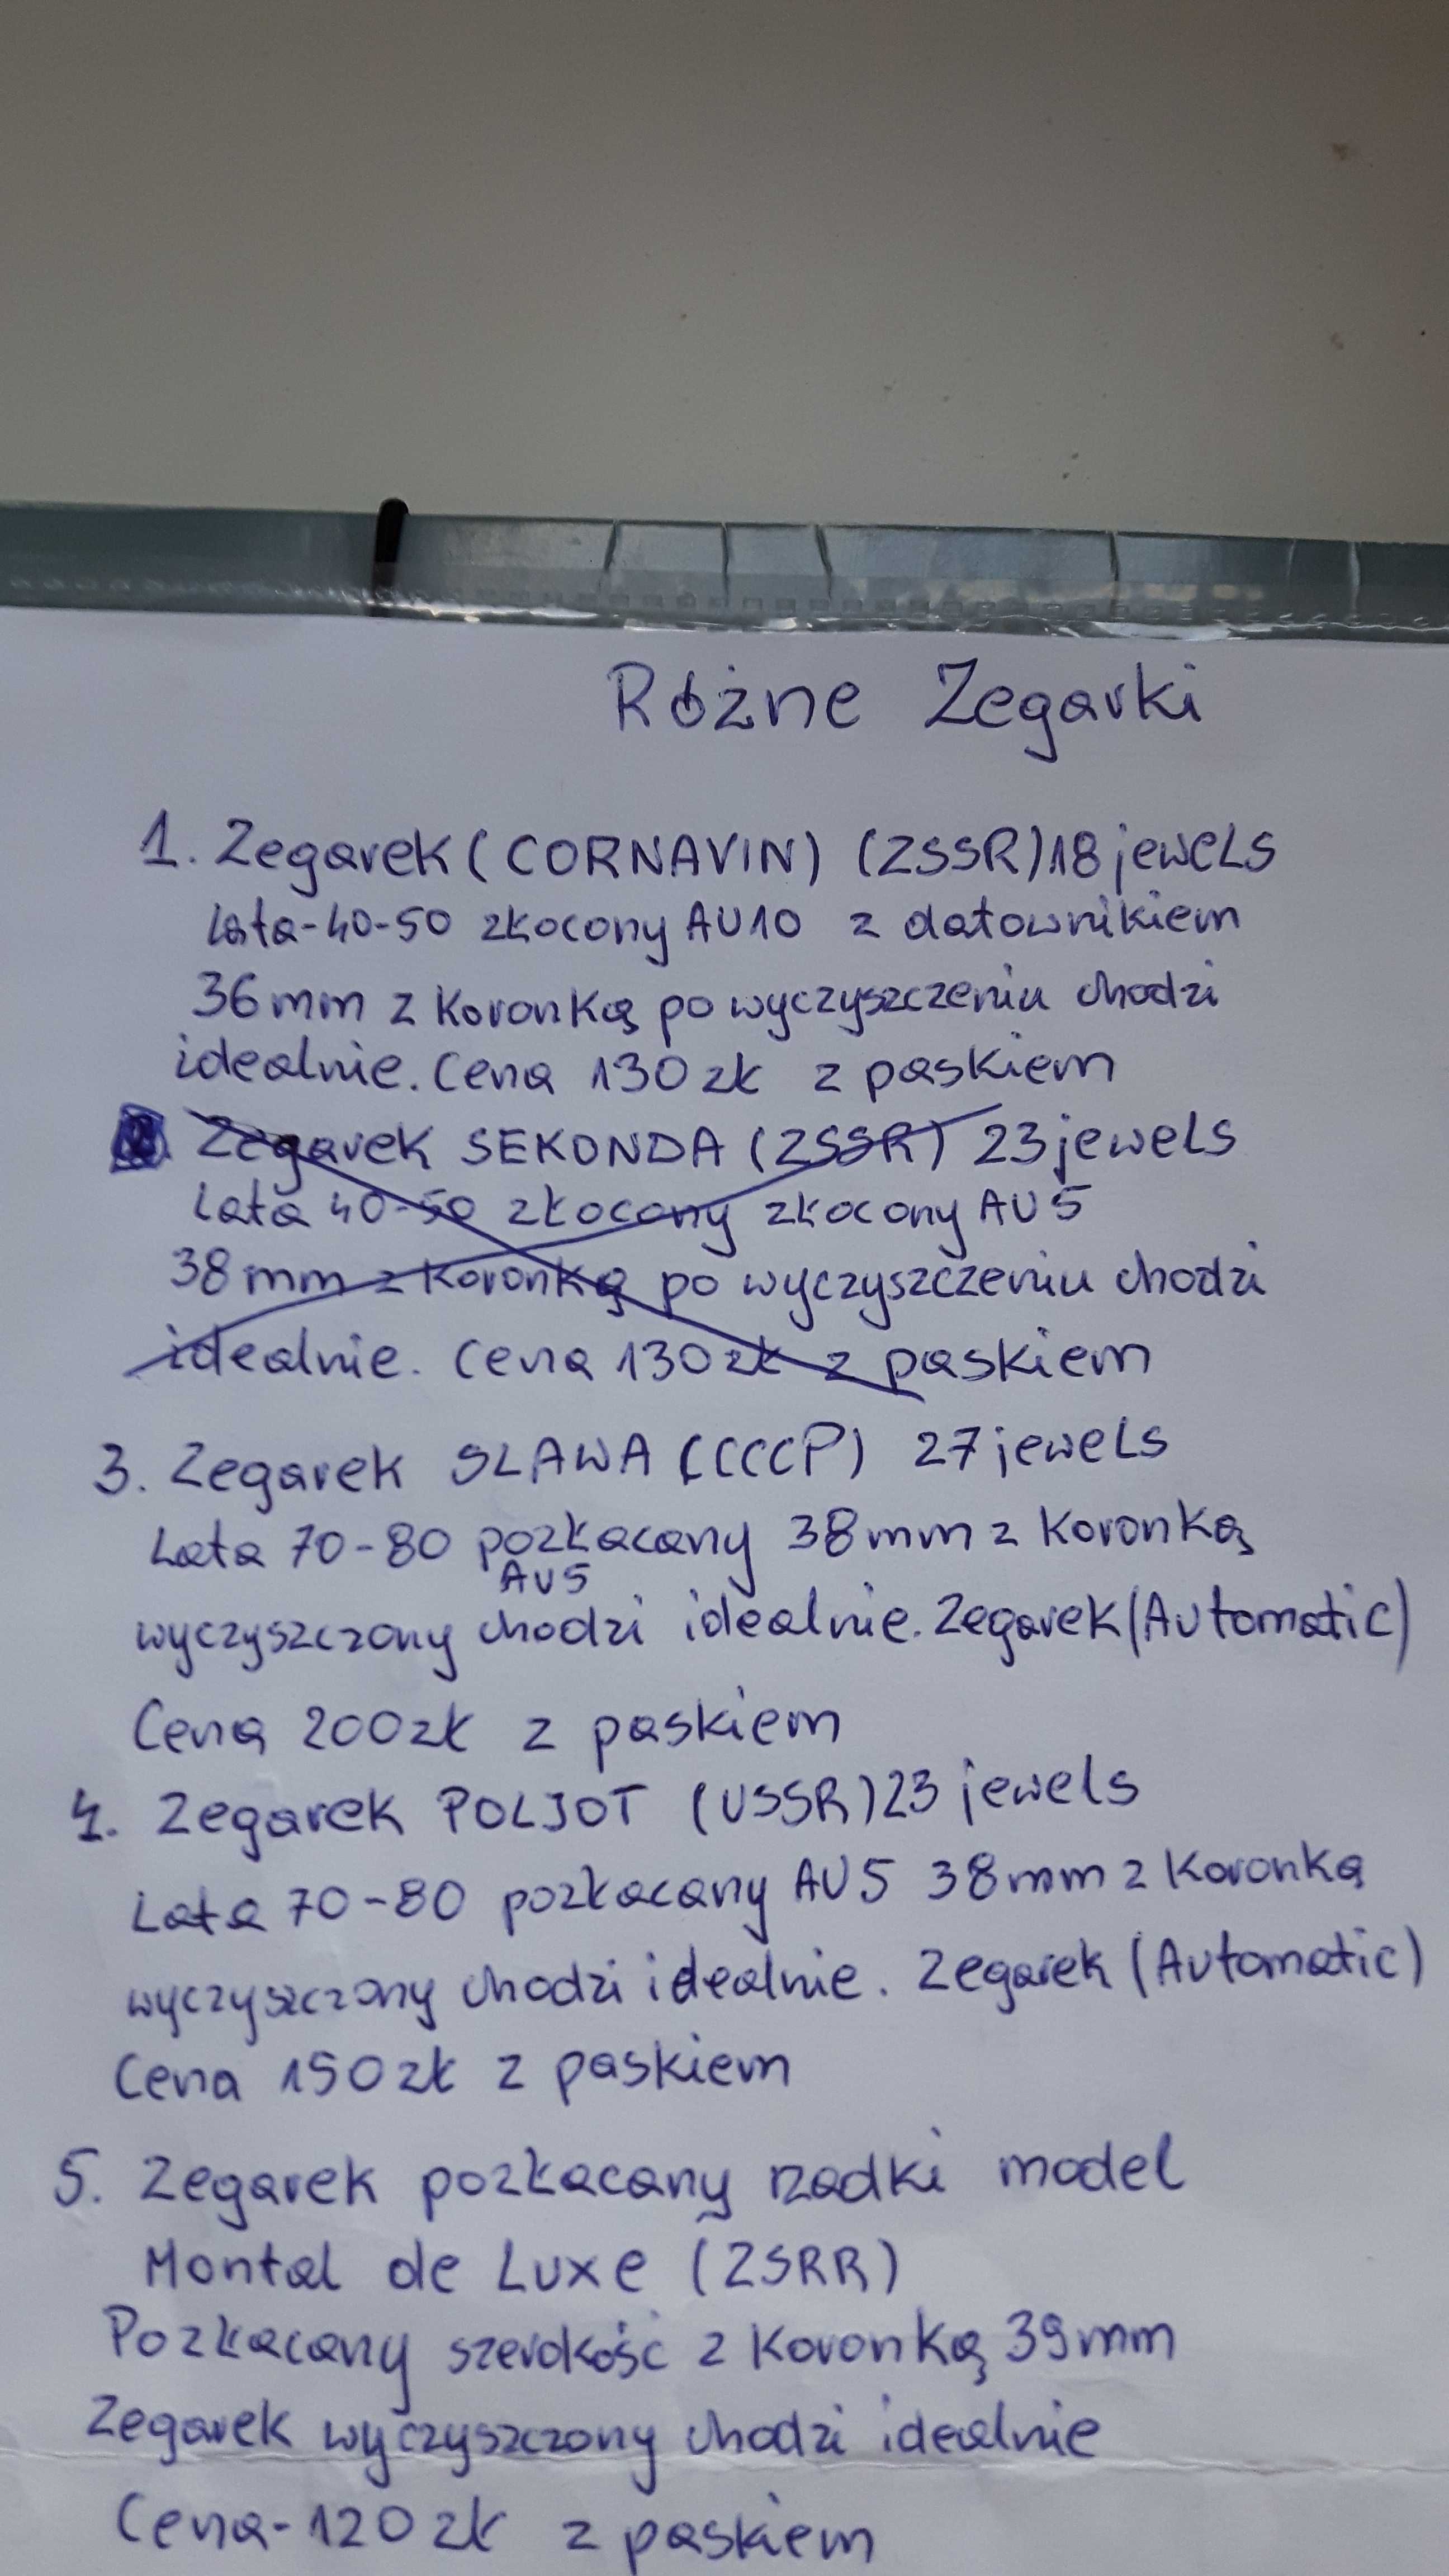 Różne Zegarki
1. Zegarek (CORNAVIN) (ZSSR) 18 jewels
Lata-40-50 złocony AU10 z datownikiem
36 mm z Koronką po wyczyszczeniu chodzi
idealnie. Cena 130 zł z paskiem
Zegarek SEKONDA (ZSSR) 23 jewels
Lata 40-50 złocony złocony AU5
38 mm z Koronką po wyczyszczeniu chodzi
idealnie. Cena 130 zł z paskiem
3. Zegarek SLAWA (CCCP) 27 jewels
Lata 70-80 pozłacany 38 mm z Koronką
AU5
wyczyszczony chodzi idealnie. Zegarek (Automatic)
Cena 200 zł z paskiem
4. Zegarek POLJOT (USSR) 23 jewels
Lata 70-80 pozłacany AU5 38 mm z Koronką
wyczyszczony chodzi idealnie. Zegarek (Automatic)
Cena 150 zł z paskiem
5. Zegarek pozłacany rzadki model
Montal de Luxe (ZSRR)
Pozłacany szerokość z Koronką 39 mm
Zegarek wyczyszczony chodzi idealnie
Cena-120 zł z paskiem